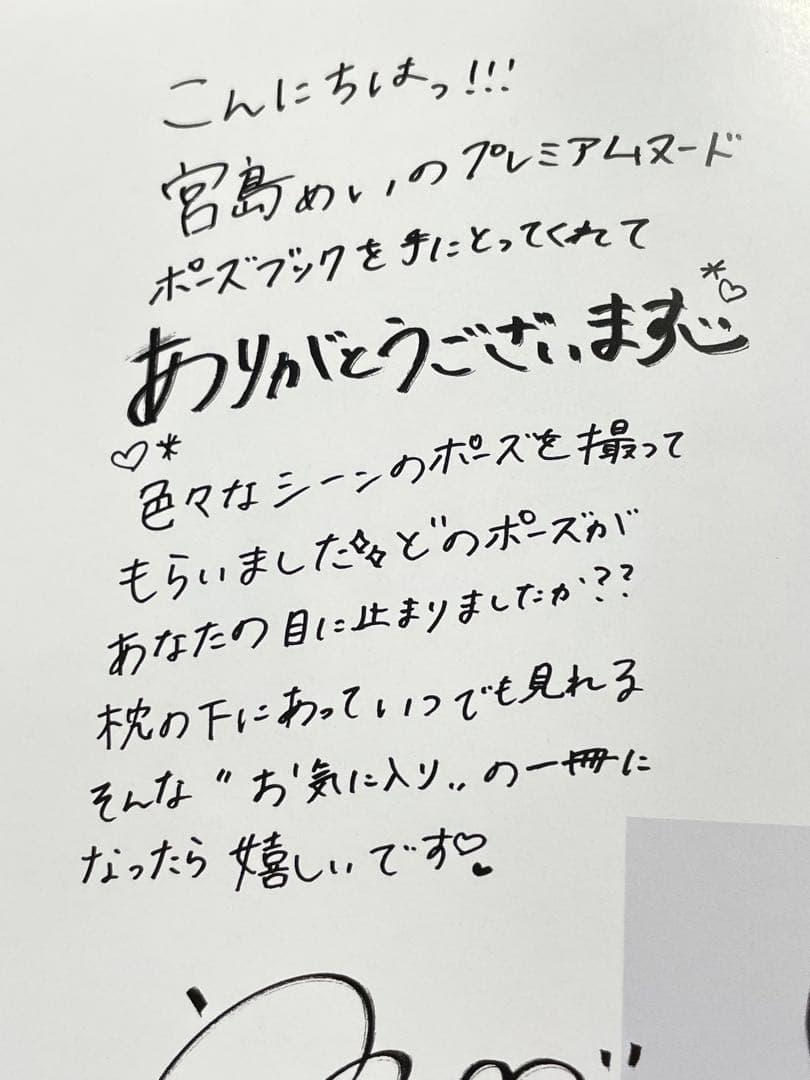 こんにちはっ!!!
宮島めいのプレミアムヌード
ポーズブックを手にとってくれて
ありがとうございます
色々なシーンのポーズを撮って
もらいました どのポーズが
あなたの目に止まりましたか??
枕の下にあっていつでも見れる
そんな〝お気に入り〟の一冊に
なったら嬉しいです♡